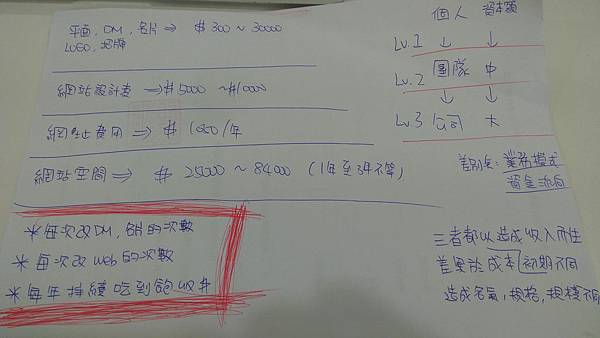 平面, DM, 名片 ⇒ $ 300 ~ 30000
LOGO, 招牌
網站設計費 ⇒ $5000 ~ $10000
網址費用 ⇒ $ 1000/年
網站空間 ⇒ $ 25000 ~ 84000 (1年至3年不等)
*每次改DM, 名片的次數
*每次改Web的次數
*每年持續吃到飽收$
個人 資本額
Lv.1 ↓ ↓
Lv.2 團隊 中
↓ ↓
Lv.3 公司 大
差別在: 業務模式
資金流向
三者都以造成收入所在
差異於成本 初期不同
造成名氣, 規格, 規模不同